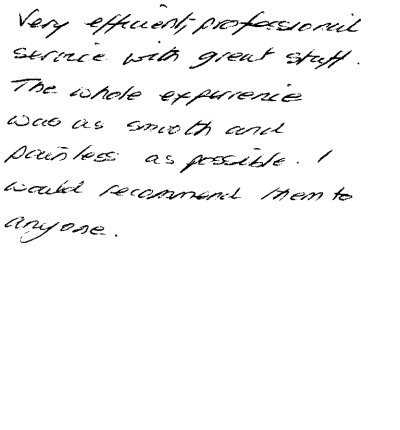 Very efficient, professional
service with great staff.
The whole experience
was as smooth and
painless as possible. I
would recommend them to
anyone.